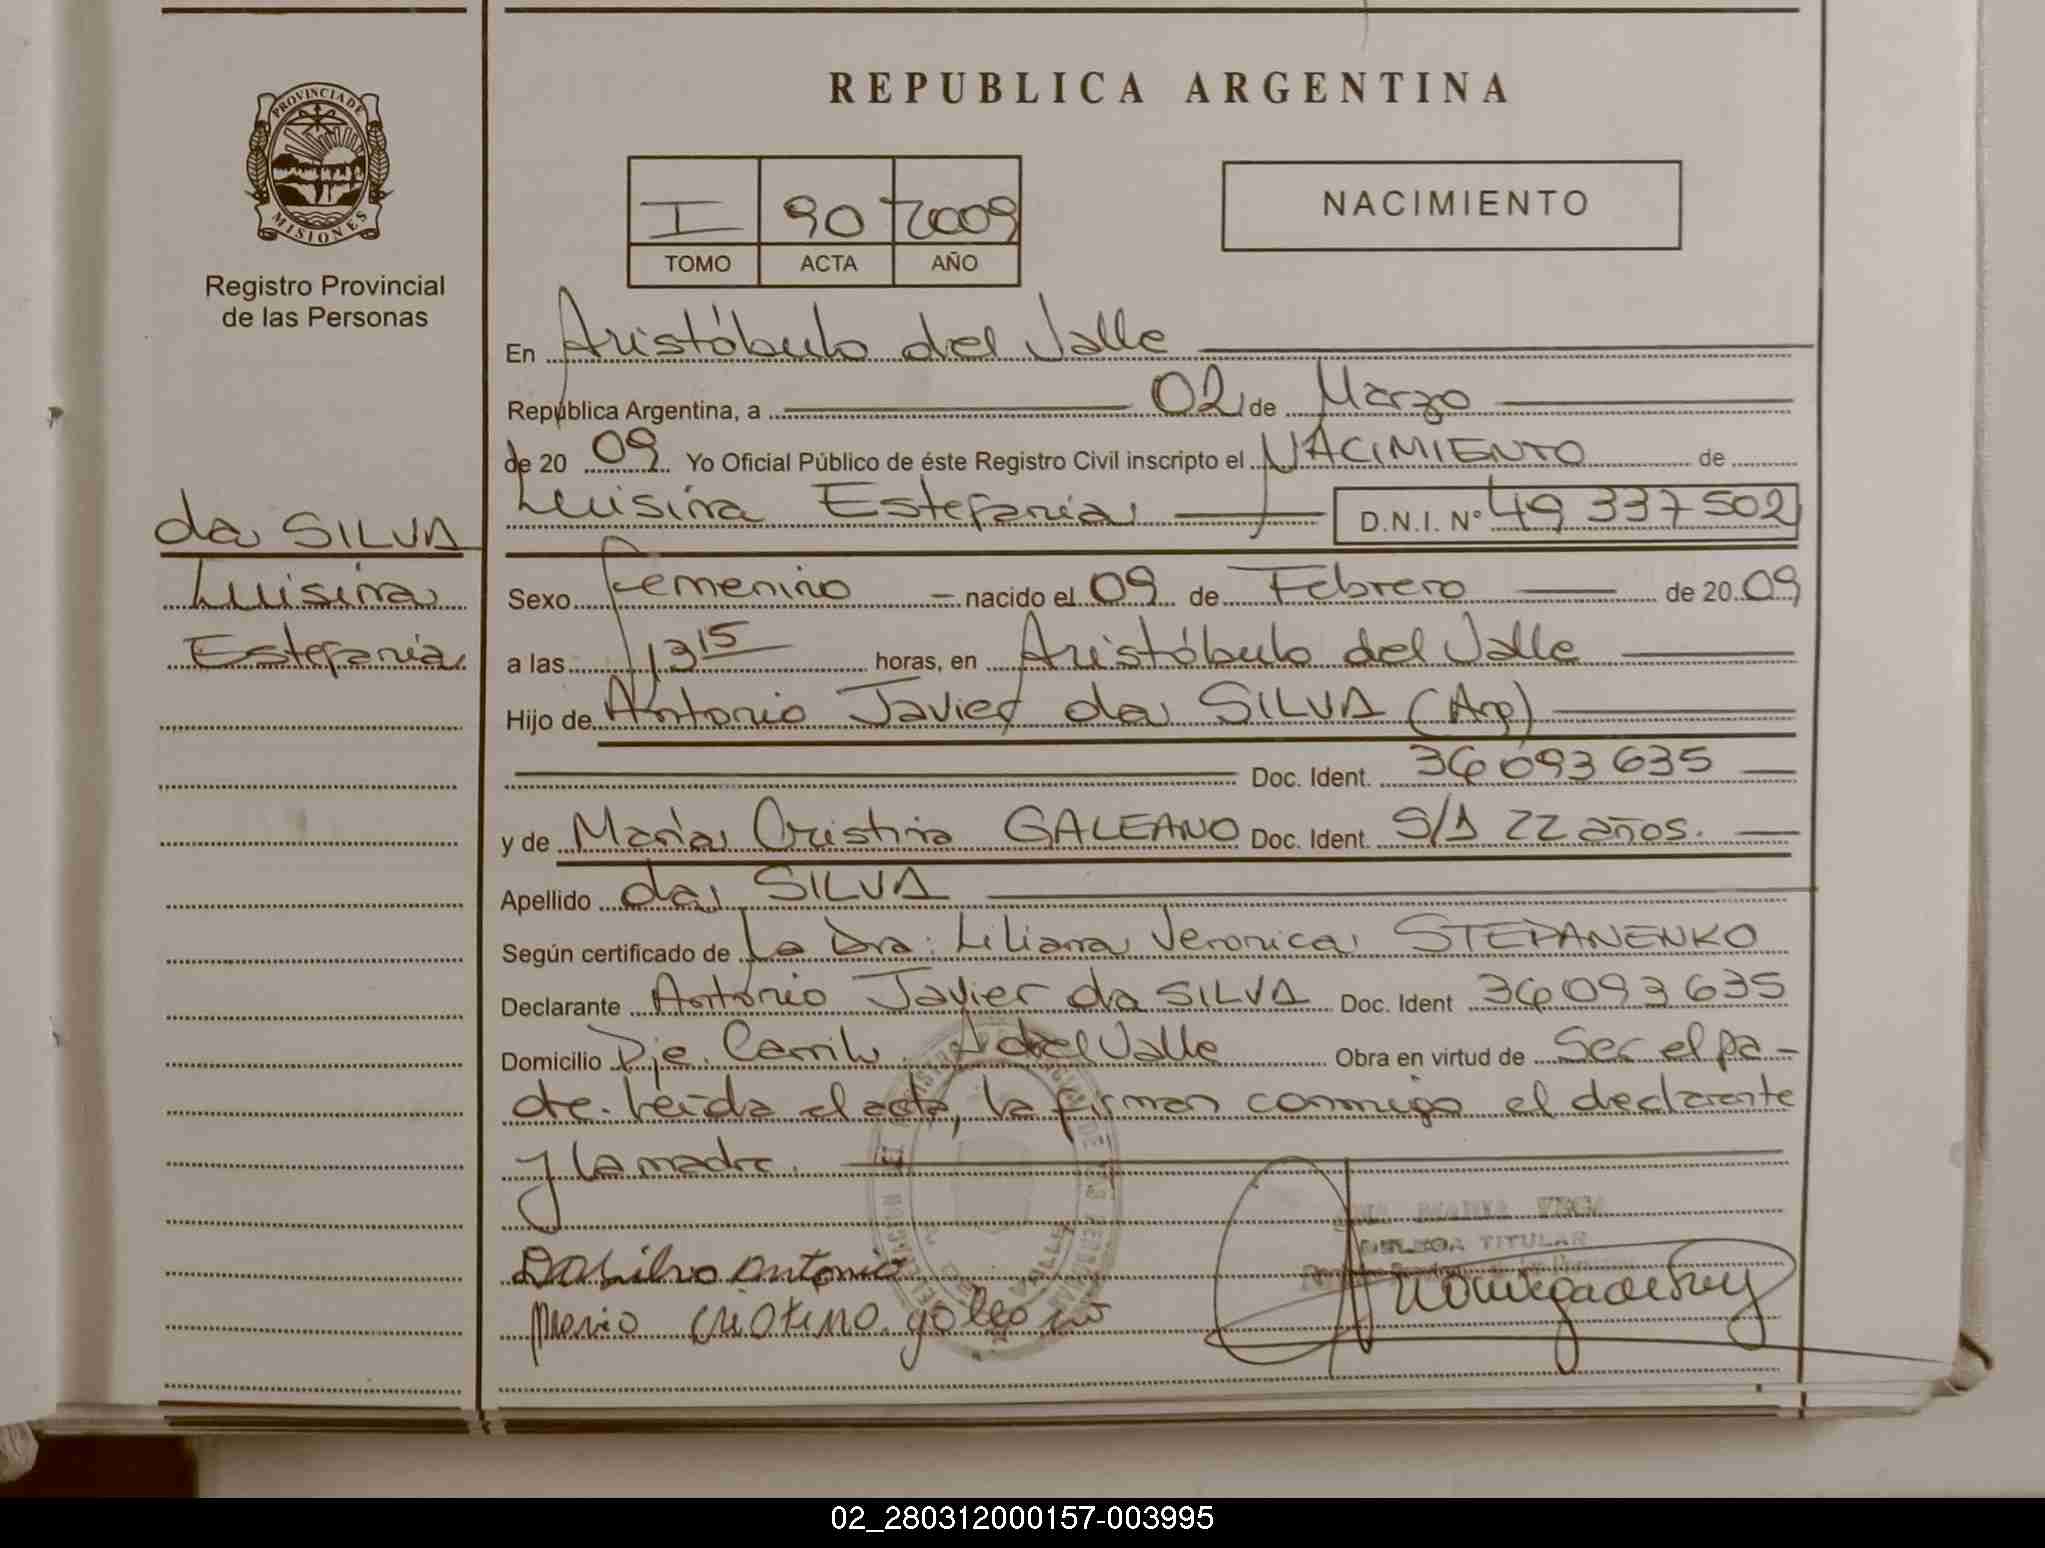 REPUBLICA ARGENTINA
PROVINCIA DE
MISIONES
Registro Provincial
de las Personas
I 90 2009
TOMO ACTA AÑO
NACIMIENTO
da SILVA
Luisina
Estefania
En Aristóbulo del Valle
República Argentina, a 02 de Marzo
de 20 09 Yo Oficial Público de éste Registro Civil inscripto el NACIMIENTO de
Luisina Estefania D.N.I. N° 49 337 502
Sexo Femenino nacido el 09 de Febrero de 20 09
a las 13 15 horas, en Aristóbulo del Valle
Hijo de Antonio Javier da SILVA (Arg)
Doc. Ident. 36 093 635
y de María Cristina GALEANO Doc. Ident. S/D 22 años.
Apellido da SILVA
Según certificado de La Dra. Liliana Veronica STEPANENKO
Declarante Antonio Javier da SILVA Doc. Ident 36 093 635
Domicilio Pje. Cerrito. A del Valle Obra en virtud de Ser el pa-
dre. Leida el acta, la firman conmigo el declarante
y la madre.
DELEGA TITULAR
Da Silva Antonio
Maria Cristina galeano
02_280312000157-003995